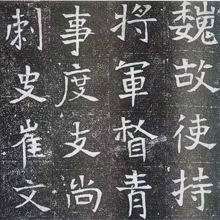 魏故使持
將軍督青
事度支尚
刺史崔文